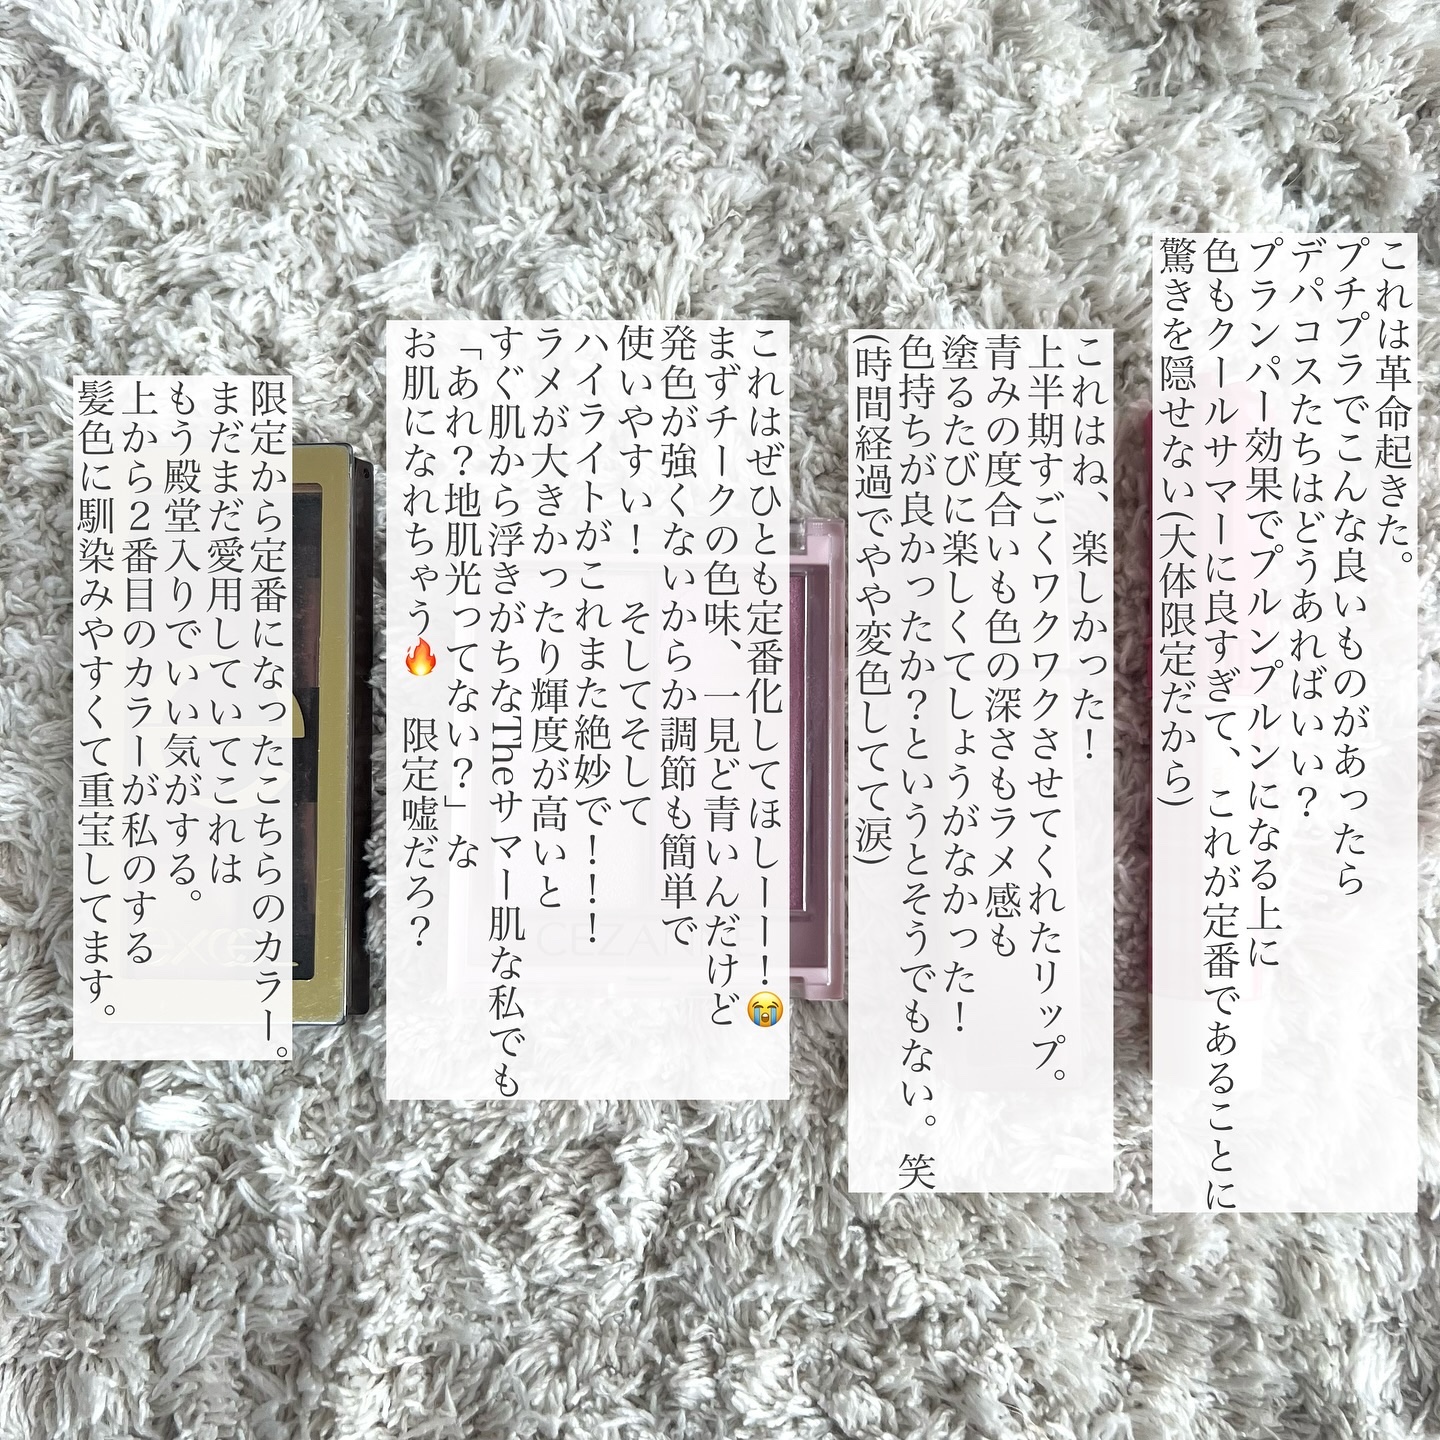 これは革命起きた。
プチプラでこんな良いものがあったら
デパコスたちはどうあればいい？
プランパー効果でプルンプルンになる上に
色もクールサマーに良すぎて、これが定番であることに
驚きを隠せない(大体限定だから)
これはね、楽しかった！
上半期すごくワクワクさせてくれたリップ。
青みの度合いも色の深さもラメ感も
塗るたびに楽しくてしょうがなかった！
色持ちが良かったか？というとそうでもない。笑
(時間経過でやや変色してて涙)
これはぜひとも定番化してほしーーー！😭
まずチークの色味、一見ど青いんだけど
発色が強くないからか調節も簡単で
使いやすい！　そしてそして
ハイライトがこれまた絶妙で！！！
ラメが大きかったり輝度が高いと
すぐ肌から浮きがちなTheサマー肌な私でも
「あれ？地肌光ってない？」な
お肌になれちゃう🔥　限定嘘だろ？
CEZANNE
限定から定番になったこちらのカラー。
まだまだ愛用していてこれは
もう殿堂入りでいい気がする。
上から2番目のカラーが私のする
髪色に馴染みやすくて重宝してます。
e
excel